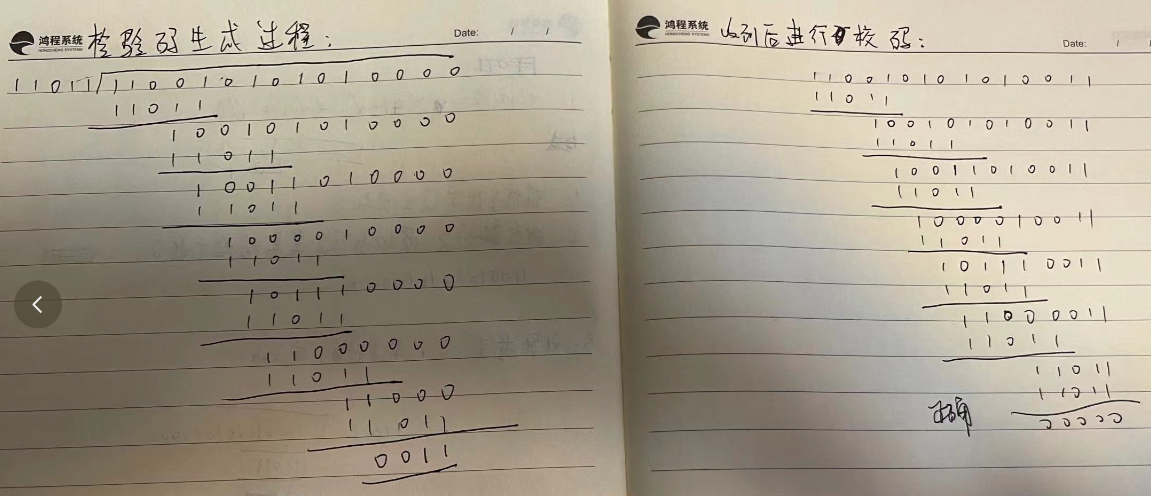 鸿程系统
HONGCHENG SYSTEMS
检验码生成过程：
Date: / /
11011 110010101010000
11011
100101010000
11011
10011010000
11011
1000010000
11011
101110000
11011
11000000
11011
11000
11011
0011
鸿程系统
HONGCHENG SYSTEMS
收到后进行校码：
Date: / /
110010101010011
11011
100101010011
11011
10011010011
11011
1000010011
11011
101110011
11011
11000011
11011
11011
11011
正确
00000